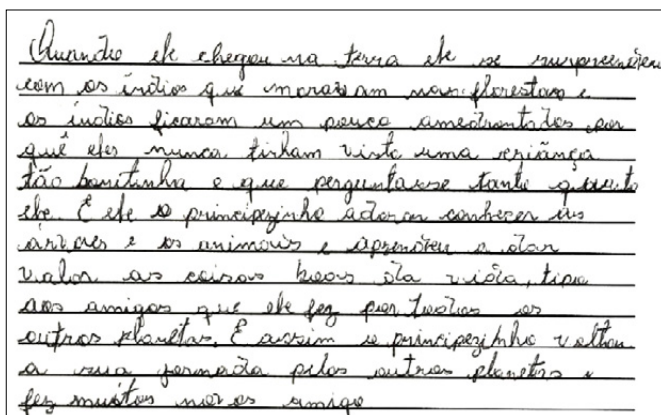 Quando ele chegou na terra ele se surpreendeu
com os índios que moravam nas florestas e
os índios ficaram um pouco amedrontados por
quê eles nunca tinham visto uma criança
tão bonitinha e que perguntasse tanto quanto
ele. E ele o principezinho adorou conhecer as
árvores e os animais e aprendeu a dar
valor as coisas boas da vida, tipo
aos amigos que ele fez por todos os
outros planetas. E assim o principezinho voltou
a sua jornada pelos outros planetas e
fez muitos novos amigo